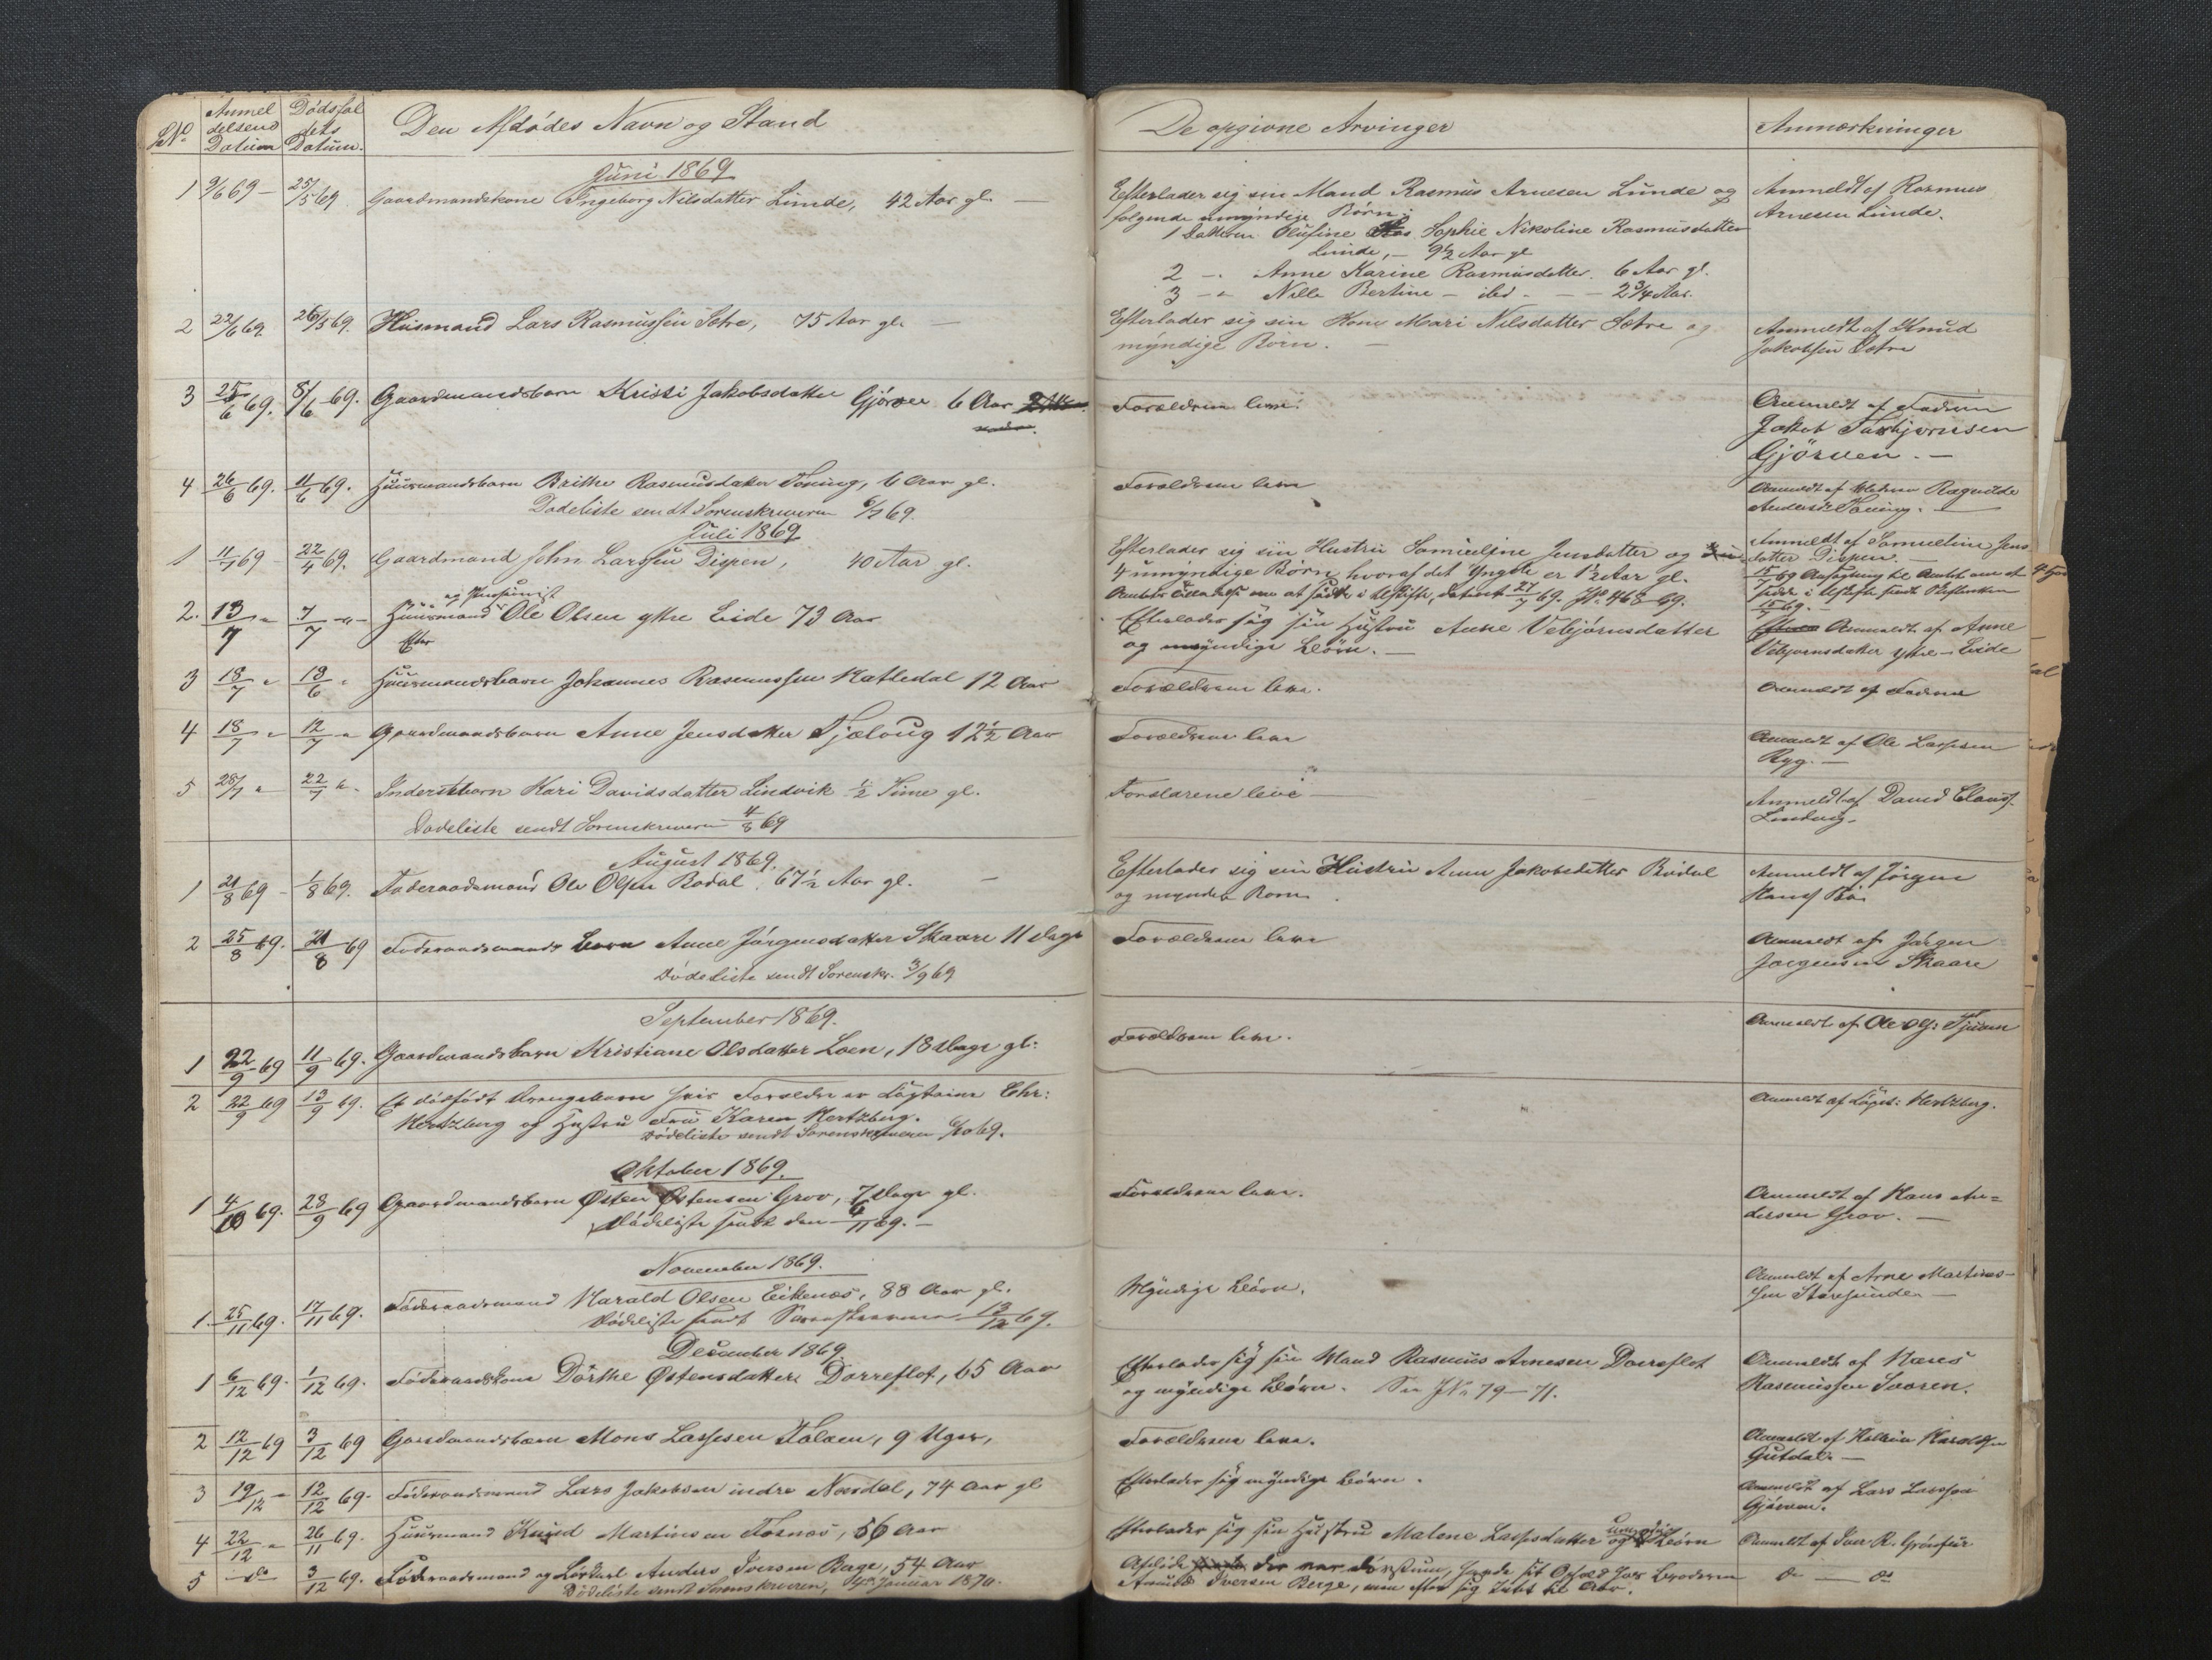 No Anmeldelsens Datum Dødsfaldets Datum. Den Afdødes Navn og Stand
Juni 1869
1 9/6 69 - 25/5 69 Gaardmandskone Ingeborg Nilsdatter Lunde, 42 Aar gl. —
2 22/6 69. 26/5 69. Huusmand Lars Rasmussen Sætre, 75 Aar gl. —
3 25/6 69. 8/6 69. Gaardmandsbarn Kristi Jakobsdatter Gjørven 6 Aar
4 26/6 69. 11/6 69. Huusmandsbarn Brithe Rasmusdatter Toning, 6 Aar gl.
Dødeliste sendt Sorenskriveren 6/7 69.
Juli 1869
1 11/7 69 - 22/4 69. Gaardmand John Larssen Dispen, 40 Aar gl.
og Pensionist
2. 13/7 " 7/7 " Huusmand Ole Olsen ytre Eide 73 Aar
Efter
3 18/7 " 19/6 " Huusmandsbarn Johannes Rasmussen Hatledal 12 Aar
4 18/7 " 12/7 " Gaardmandsbarn Anne Jensdatter Tjelaug 12½ Aar
5 28/7 " 22/7 " Inderstbarn Kari Davidsdatter Lindvik ½ Time gl.
Dødeliste sendt Sorenskriveren 4/8 69
August 1869.
1 21/8 69 - 1/8 69. Føderaadsmand Ole Olsen Bødal, 67½ Aar gl. —
2 25/8 69. 21/8 69 Føderaadsmands barn Anne Jørgensdatter Skaare 11 Dage
Dødeliste sendt Sorenskr. 3/9 69
September 1869.
1 22/9 69 11/9 69. Gaardmandsbarn Kristiane Olsdatter Loen, 18 Dage gl:
2 22/9 69 13/9 69. Et dødfødt Drengebarn hvis Forældre er Captaine Chr:
Hertzberg og Hustru Fru Karen Hertzberg.
Dødeliste sendt Sorenskriveren /10 69.
Oktober 1869.
1 4/10 69. 28/9 69 Gaardmandsbarn Østen Østensen Grov, 7 Dage gl.
Dødeliste sendt den 4/11 69. —
November 1869.
1. 25/11 69. 17/11 69. Føderaadsmand Harald Olsen Eikenæs, 88 Aar gl.
Dødeliste sendt Sorenskriveren 13/12 69.
December 1869.
1 6/12 69. 1/12 69. Føderaadskone Dorthe Østensdatter Dorreflot, 65 Aar
2 12/12 69 3/12 69 Gaardmandsbarn Mons Lassesen Følven, 9 Uger,
3 19/12 " 12/12 69. Føderaadsmand Lars Jakobsen indre Nordal, 74 Aar gl
4 22/12 " 26/11 69. Huusmand Knud Martinsen Tosnæs, 56 Aar
5 - do 3/12 69. Føderaadsmand og Anders Iversen Berge, 54 Aar
Dødeliste sendt Sorenskriveren, Januar 1870.
De opgivne Arvinger Anmærkninger
Efterlader sig sin Mand Rasmus Arnesen Lunde og
følgende umyndige Børn:
1 Datteren Olufine Sophie Nikoline Rasmusdatter
Lunde, — 9½ Aar gl
2 — Anne Karine Rasmusdatter. 6 Aar gl.
3 — " Nille Bertine — ibid — — 2¾ Aar.
Anmeldt af Rasmus
Arnesen Lunde.
Efterlader sig sin Kone Mari Nilsdatter Sætre og
myndige Børn. —
Anmeldt af Knud
Jakobsen Sætre
Forældrene leve.
Anmeldt af Faderen
Jakob Torbjørnsen
Gjørven. —
Forældrene leve
Anmeldt af Moderen Ragnilde
Andersdr Toning. —
Efterlader sig sin Hustru Samueline Jensdatter og
4 umyndige Børn, hvoraf det Yngste er 1½ Aar gl.
Amtets Tilladelse om at sidde i uskifte, dateret 27/7 69. JNo 468-69.
Anmeldt af Samueline Jens
datter Dispen. —
15/7 69 Ansøgning til Amtet om at
sidde i Uskifte sendt
15/7 69.
Efterlader sig sin Hustru Anne Vebjørnsdatter
og myndige Børn. —
Anmeldt af Anne
Vebjørnsdatter ytre-Eide
Forældrene leve.
Anmeldt af Faderen
Forældrene leve
Anmeldt af Ole Lassesen
Ryg. —
Forældrene leve —
Anmeldt af David Clauss.
Lindvig.
Efterlader sig sin Hustru Anne Jakobsdatter Bødal
og myndige Børn.
Anmeldt af Jørgen
Hans Bø.
Forældrene leve
Anmeldt af Jørgen
Jørgensen Skaare
Forældrene leve.
Anmeldt af Ole Ols: Tjuven
Anmeldt af Capt: Hertzberg.
Forældrene leve.
Anmeldt af Hans An=
dersen Grov. —
Myndige Børn.
Anmeldt af Arne Martinus-
sen Storesunde. —
Efterlader sig sin Mand Rasmus Arnesen Dorreflot
og myndige Børn. Se JNo 79-71.
Anmeldt af Hans
Rasmussen Svoren.
Forældrene leve.
Anmeldt af Haldsen
Gutdal. —
Efterlader sig myndige børn.
Anmeldt af Lars Larssen
Gjørven.
Efterlader sig sin Hustru Malene Lassesdatter og umyndige Børn
Anmeldt af Iver R. Grønfur
Afdøde der var døvstum, havde sit Ophold hos Broderen
Iversen Berge, men efter sig Intet til Arv.
do — do